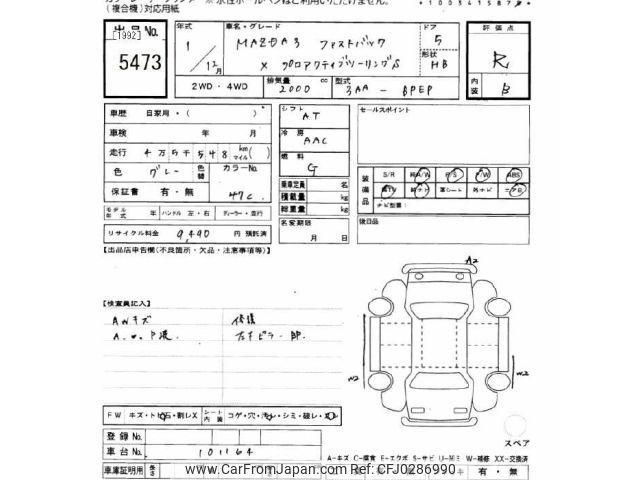 (複合機)対応用紙
出品No.
[1992]
5473
年式
1/12月
車名・グレード
MAZDA3 ファストバック
X プロアクティブツーリングS
ドア
5
形状
HB
評価点
R
内装
B
2WD・4WD
排気量
2000 cc
型式
3AA-BPEP
車歴 自家用・( )
車検 年 月
走行 4万5千548 km マイル( )
色 グレー
色替
カラーNo.
47C
保証書 有・無
モデル年式 年 ハンドル 左・右 ディーラー・並行
リサイクル料金 9,490 円 預託済
シフト
AT
冷房
AAC
燃料
G
乗車定員 名
積載量 kg
総重量 kg
名変期限
月 日
セールスポイント
装備品
S/R 純A/W P/S P/W ABS
純TV 純ナビ 革シート 外ナビ エアB
ナビ型番:
後日品
【出品店申告欄(不良箇所・欠品・注意事項等)】
【検査員記入】
AWキズ 修復
A2
W2
W2
FW キズ・トビ石・割レX
シート内装
コゲ・穴・汚レ・シミ・破レ・スレ
登録No.
車台No. 101164
スペア
A-キズ C-腐食 E-エクボ S-サビ U-凹ミ W-補修 XX-交換済
車庫証明用 長さ
有・無
www.CarFromJapan.com Ref:CFJ0286990